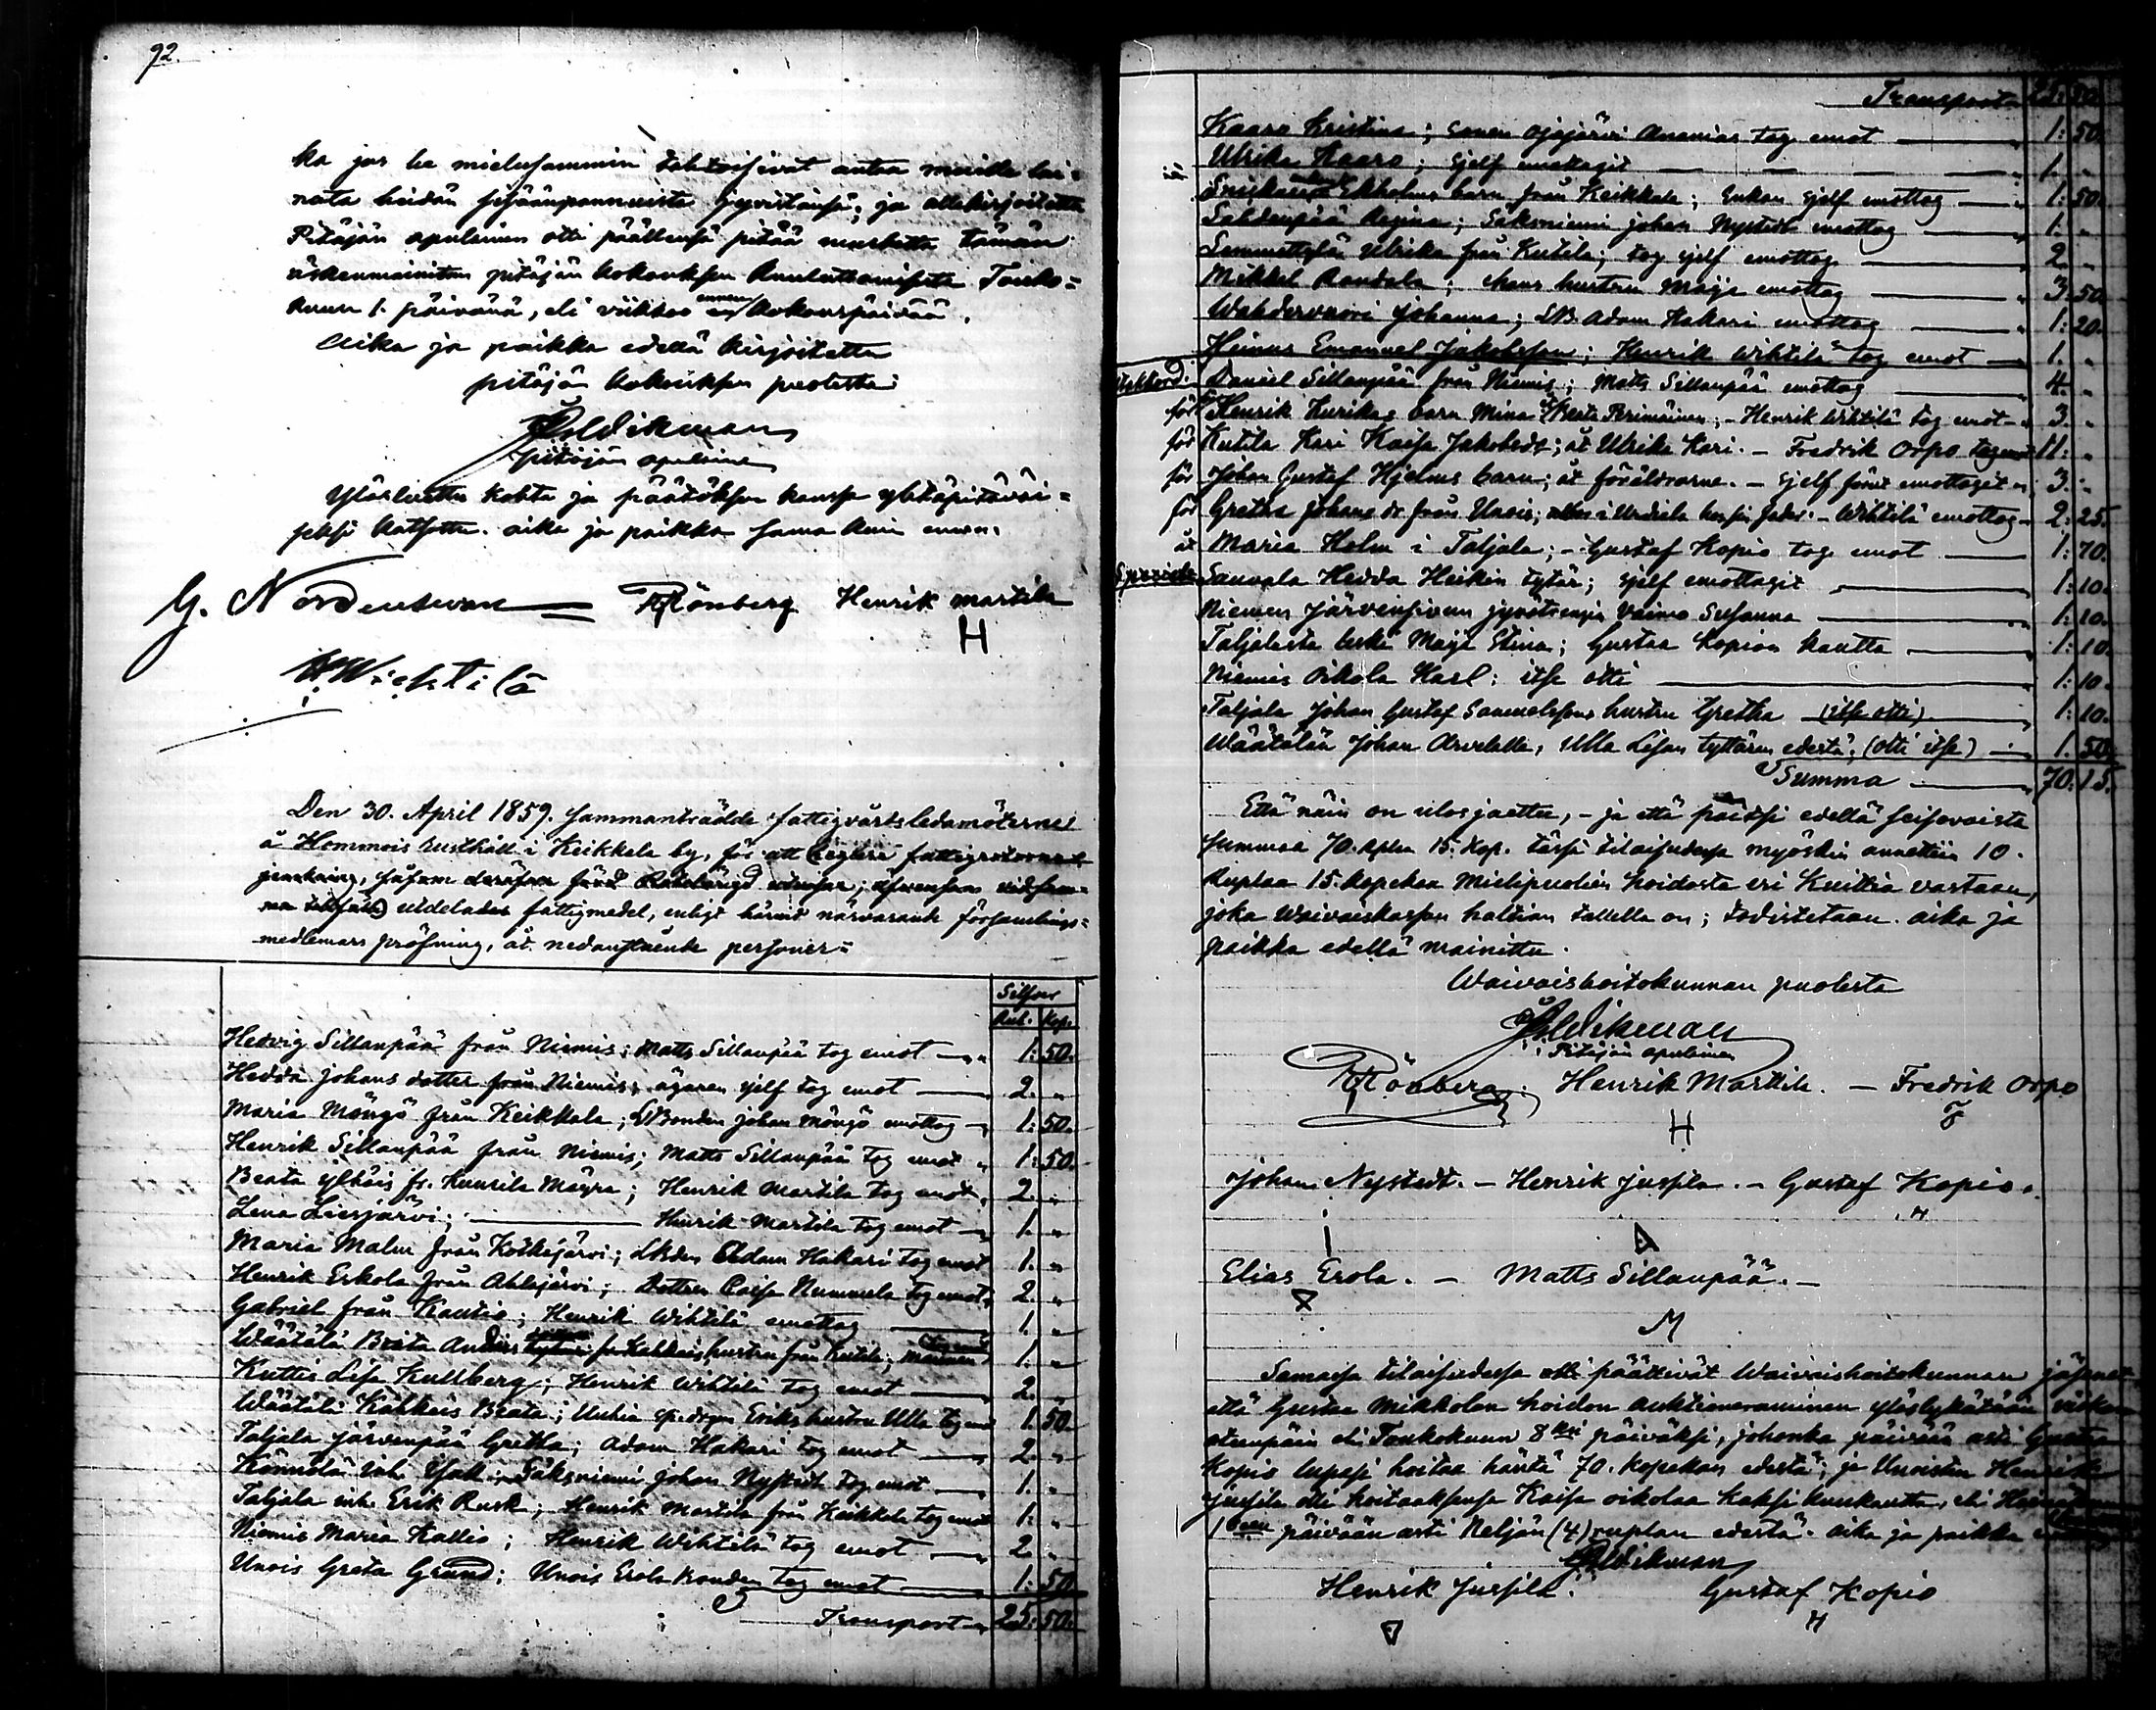 92.
ka jos he mieluisammin tahtoisivat antaa muille lai=
nata heidän sisäänpannuista jyvistänsä; ja allekirjoitettu
Pitäjän apulainen otti päällensä pitää murhetta tämän
äskenmainitun pitäjän kokouksen kuuluttamisesta Touko=
kuun 1. päivänä, eli viikkoo ennen kokouspäivää.
Aika ja paikka edellä kirjoitettu
pitäjän kokouksen puolesta:
pitäjän apulainen
Ylösluettu kohta ja päätöksen kanssa yhtäpitäväi=
seksi katsottu. aika ja paikka sama kuin ennen.
G. Nordenswan Rönberg Henrik Martila
H
Wichtilä
Den 30. April 1859. sammanträdde fattigvårdsledamöterne
å Hommois rusthåll i Keikkala by, för att
utdelades fattigmedel, enligt härvid närvarande församlings=
medlemars pröfning, åt nedanstående personer:
Silfver
Rub. Kop.
Hedvig Sillanpää från Niemis; Matts Sillanpää tog emot 1: 50.
Hedda Johans dotter från Niemis; ägaren sjelf tog emot 2. "
Maria Möngö från Keikkala; LBonden Johan Möngö emottog 1: 50.
Henrik Sillanpää från Niemis; Matts Sillanpää tog emot 1: 50.
Beata fr. Kuurila Mäyrä; Henrik Martila tog emot. 2. "
Lena Liesjärvi; Henrik Martila tog emot 1. "
Maria Malm från Koskejärvi; LBden Adam Hakari tog emot 1. "
Henrik Eskola från Ahlajärvi; Dottren Caisa Nummela tog emot 2. "
Gabriel från Kautio; Henrik Wihtilä emottog 1. "
Wäätälä Beata Anders hustru från Kutila; 1. "
Kuttis Lisa Kullberg; Henrik Wihtilä tog emot 2. "
Wäätälä Kahkais Beata; Eriks hustru Ulla tog emot 1. 50.
Taljala Järvenpää Gretha; Adam Hakari tog emot 2. "
Könnölä inh. Isak; Saksniemi Johan Nystedt tog emot 1. "
Taljala inh. Erik Rusk; Henrik Martila från Keikkala tog emot 1: "
Niemis Maria Kallio; Henrik Wihtilä tog emot 2. "
Unois Greta Grand; Unois Erola Bonden tog emot 1: 50
Transport 25: 50.
Transport 25: 50
Kaaro Kristina; sonen Ojajärvi Ananias tog emot 1: 50.
Ulrika Kaaro; sjelf emottagit 1. "
Ekholms barn från Keikkala; Enkan sjelf emottog 1: 50.
Lahdenpää Regina; Saksniemi Johan Nystedt emottog 1. "
Ulrika från Kutila; tog sjelf emottog 2 "
Mikkel Randala; hans hustru Maja emottog 3. 50.
Johanna; LB. Adam Hakari emottog 1: 20.
Emanuel Jakobsson; Henrik Wihtilä tog emot 1. "
Daniel Sillanpää från Niemis; Matts Sillanpää emottog 4. "
för Henrik Kurikas barn Mina Perimäinen; - Henrik Wihtilä tog emot 3. "
för Kutila Kari Kaisa Jakobsdr; åt Ulrika Kari. - Fredrik Orpo tog emot 11: "
för Johan Gustaf Hjelms barn; åt föräldrarne. - sjelf emottagit 3. "
för Gretha Johans dr från Unois; Wihtilä emottog 2: 25.
åt Maria Holm i Taljala; - Gustaf Kopio tog emot 1: 70.
Sauvala Hedda Heikin tytär; sjelf emottagit 1: 10.
Niemen Järvensivun vaimo Susanna 1: 10.
Taljalasta leski Maja Stina; Gustaa Kopion kautta 1: 10.
Niemis Oikola Karl; itse otti 1: 10.
Taljala Johan Gustaf Samuelssons hustru Gretha (itse otti) 1: 10.
Wäätälän Johan Arvelalle, Ulla Lisan tyttären edestä; (otti itse) 1. 50.
Summa 70: 15.
Että näin on ulosjaettu, - ja että paitsi edellä seisovaista
summaa 70. Rplaa 15. Kop. tässä tilaisudessa myöskin annettiin 10.
Ruplaa 15. kopekaa Mielipuolien hoidosta eri Kuittia vastaan,
joka Waivaiskassan haltian tallella on; todistetaan. aika ja
paikka edellä mainittu.
Waivaishoitokunnan puolesta
Pitäjän apulainen
Rönberg. Henrik Martila. - Fredrik Orpo
H
Johan Nystedt. - Henrik Jussila. - Gustaf Kopio.
Elias Erola. - Matts Sillanpää. -
M
Samassa tilaisudessa päättivät Waivaishoitokunnan jäsenet
että Gustaa Mikkolan hoidon auktioneraaminen ylöslykätään
eteenpäin eli Toukokuun 8 päiväksi, johonka päivään asti Gustaa
Kopio lupasi hoitaa häntä 70. kopekan edestä; ja Unoisten Henrik
Jussila otti hoitaaksensa Kaisa Oikolaa kaksi kuukautta, eli
1 päivään asti Neljän (4) ruplan edestä. aika ja paikka
Henrik Jussila. Gustaf Kopio
H